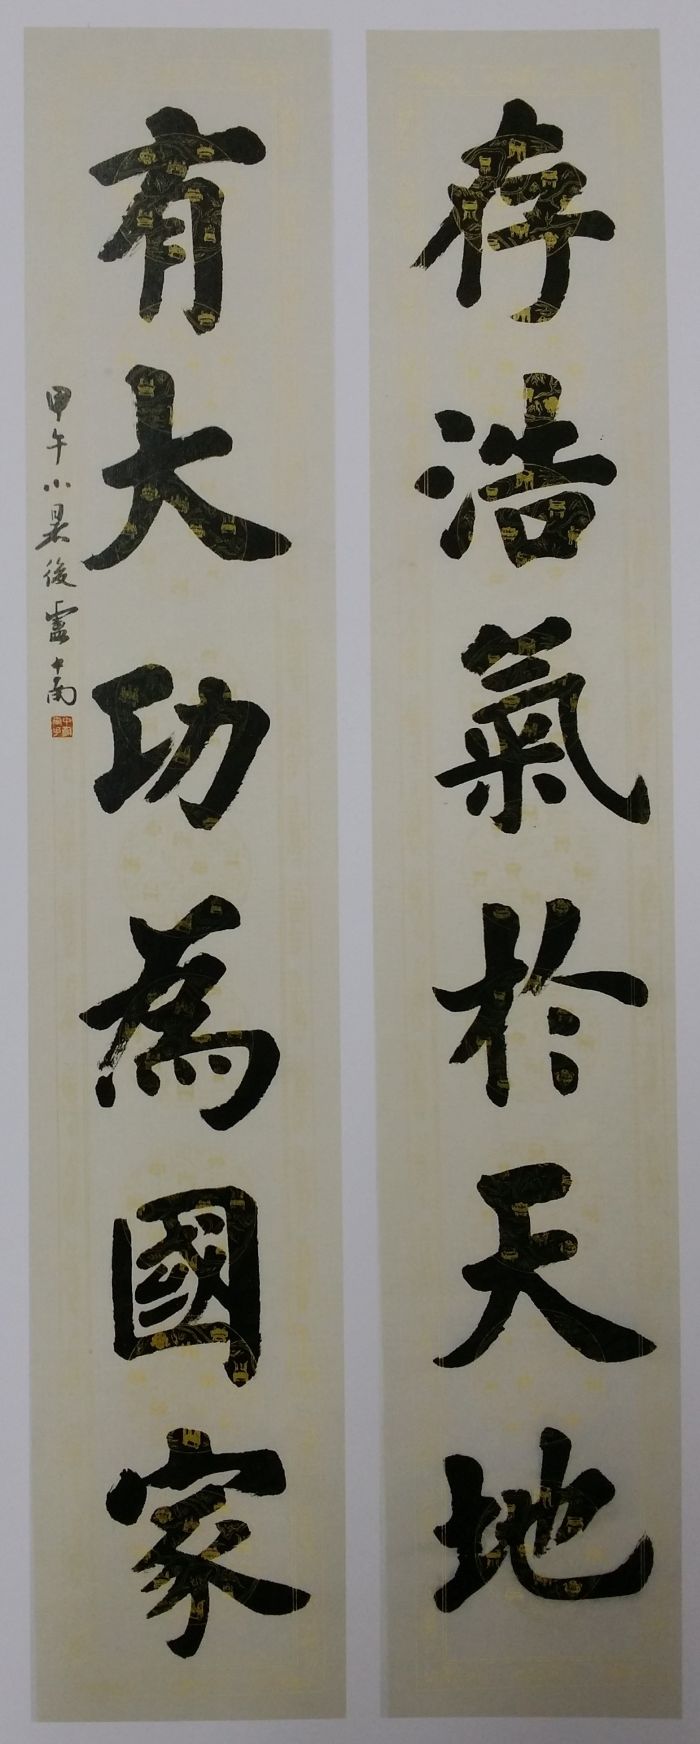 存浩氣於天地
有大功為國家
甲午小暑後盧中南